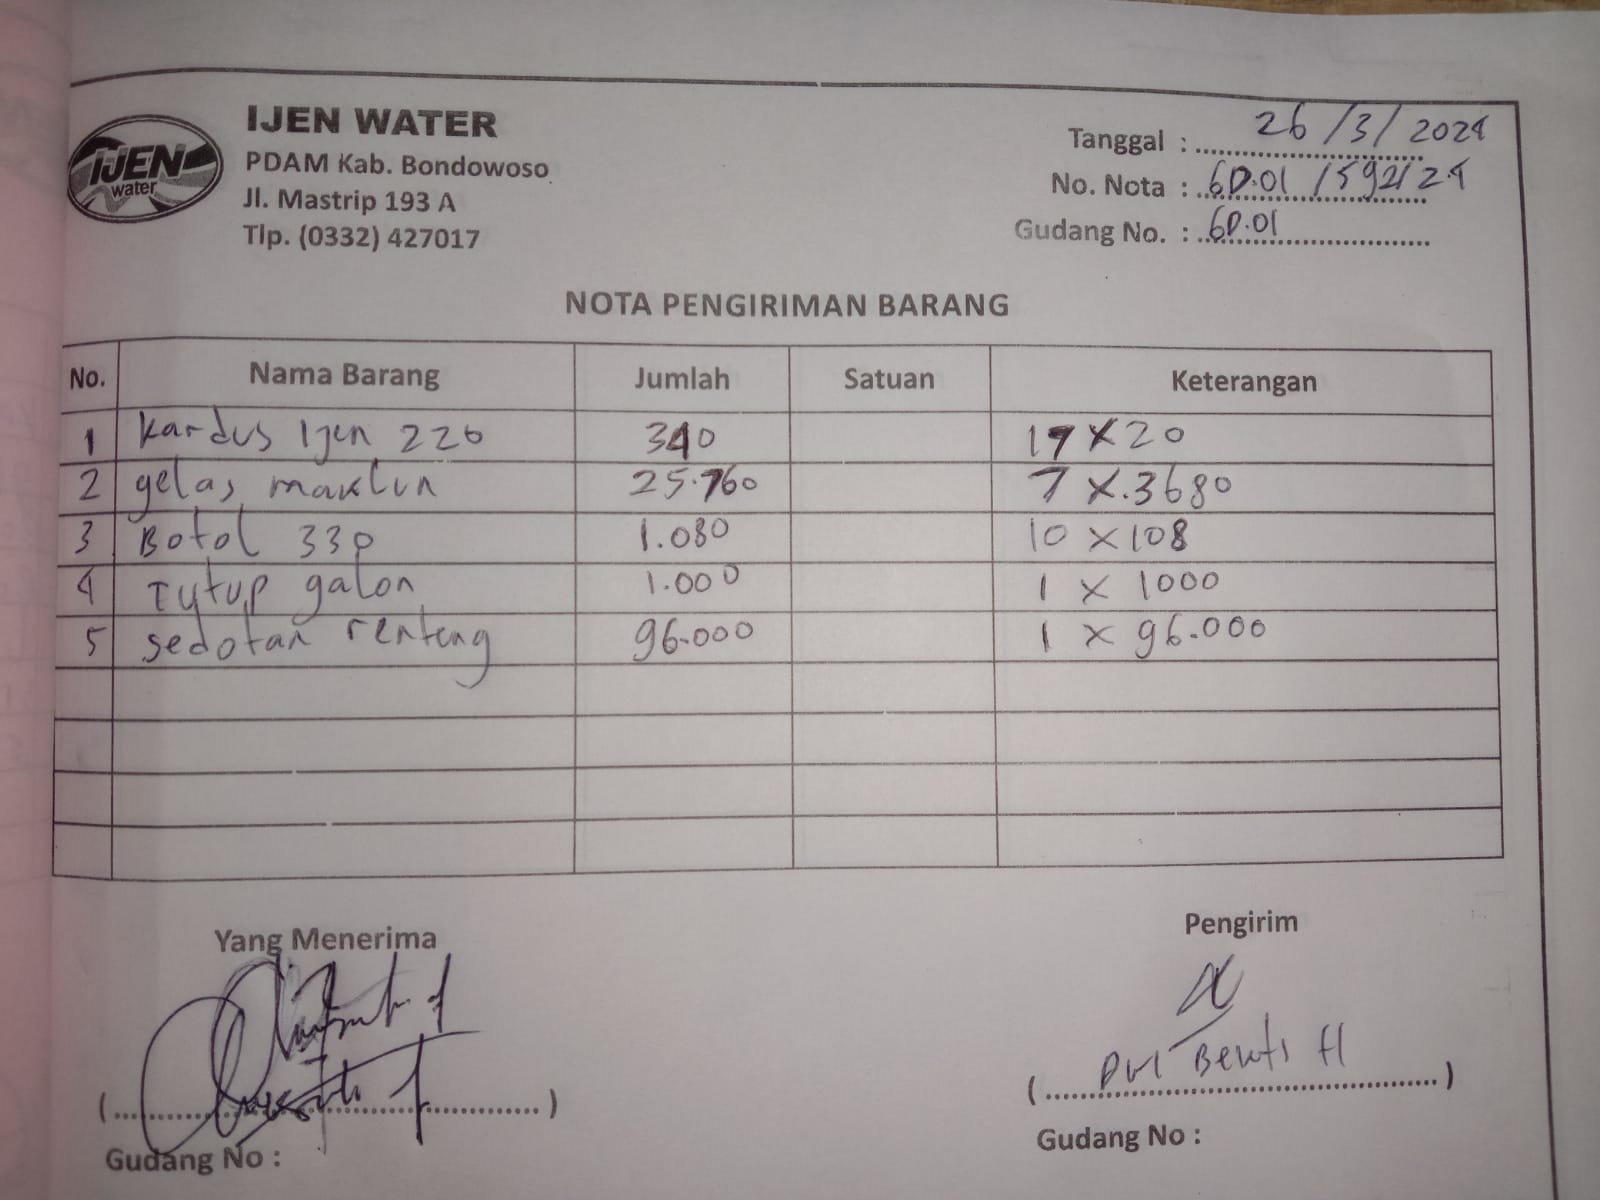 IJEN WATER
PDAM Kab. Bondowoso
Jl. Mastrip 193 A
Tlp. (0332) 427017
IJEN
water
Tanggal : 26/3/2024
No. Nota : GD.01 /592/24
Gudang No. : GD.01
NOTA PENGIRIMAN BARANG
No. Nama Barang Jumlah Satuan Keterangan
1 Kardus Ijen 220 340 17 X 20
2 gelas maklun 25.760 7 X.3680
3 Botol 330 1.080 10 X 108
4 Tutup galon 1.000 1 X 1000
5 sedotan renteng 96.000 1 X 96.000
Yang Menerima Pengirim
(..........) (..........)
Gudang No : Gudang No :